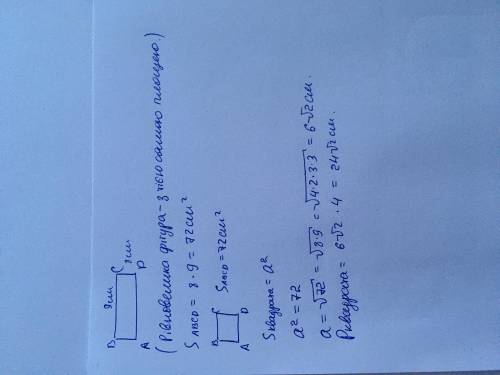 B 9см C
8см
A D
(Рівновелика фігура - з тією самою площею.)
S ABCD = 8 · 9 = 72 см²
B C
S ABCD = 72 см²
A D
S квадрата = a²
a² = 72
a = √72 = √8·9 = √4·2·3·3 = 6√2 см.
P квадрата = 6√2 · 4 = 24√2 см.